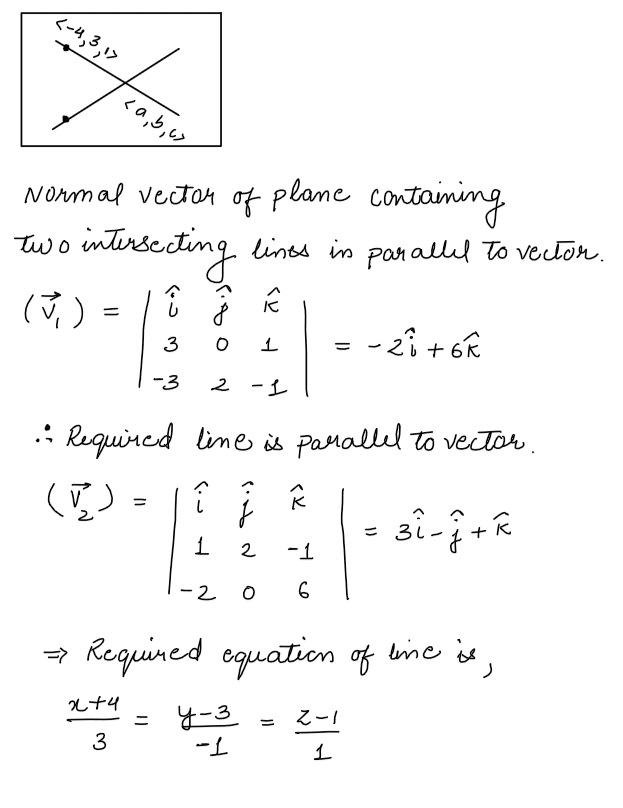 <-4,3,1>
<a,b,c>
Normal vector of plane containing
two intersecting lines in parallel to vector.
(V⃗₁) = | î ĵ k̂ |
| 3 0 1 | = -2î + 6k̂
| -3 2 -1 |
∴ Required line is parallel to vector.
(V⃗₂) = | î ĵ k̂ |
| 1 2 -1 | = 3î - ĵ + k̂
| -2 0 6 |
⇒ Required equation of line is,
x+4/3 = y-3/-1 = z-1/1